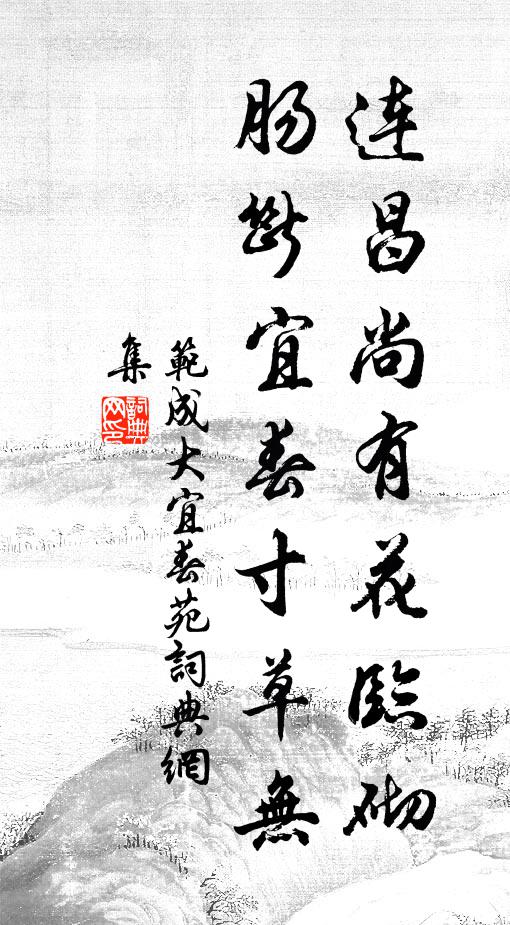 連昌尚有花臨砌
腸斷宜春寸草無
範成大宜春苑詞典網
集
詞典網印